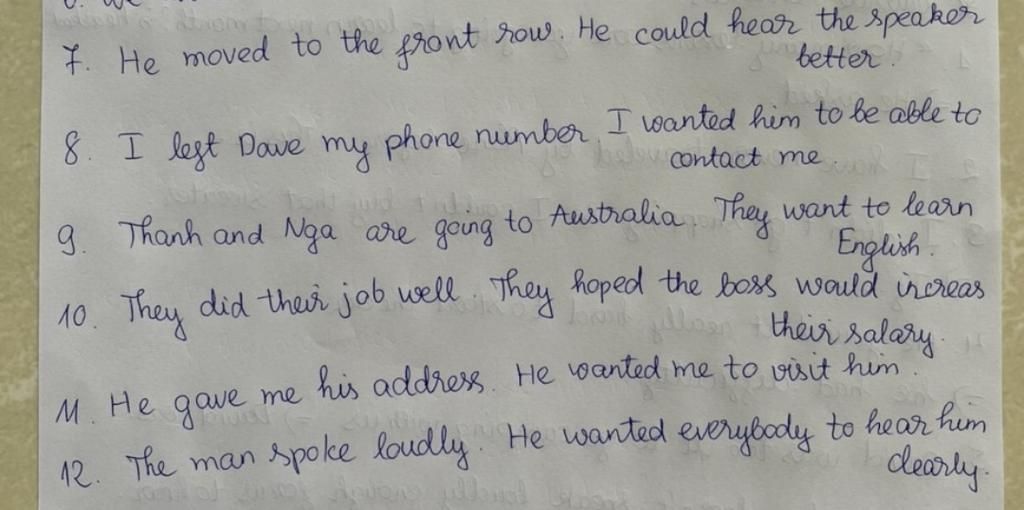 7. He moved to the front row. He could hear the speaker
better.
8. I left Dave my phone number. I wanted him to be able to
contact me.
9. Thanh and Nga are going to Australia. They want to learn
English.
10. They did their job well. They hoped the boss would increas
their salary.
11. He gave me his address. He wanted me to visit him.
12. The man spoke loudly. He wanted everybody to hear him
clearly.